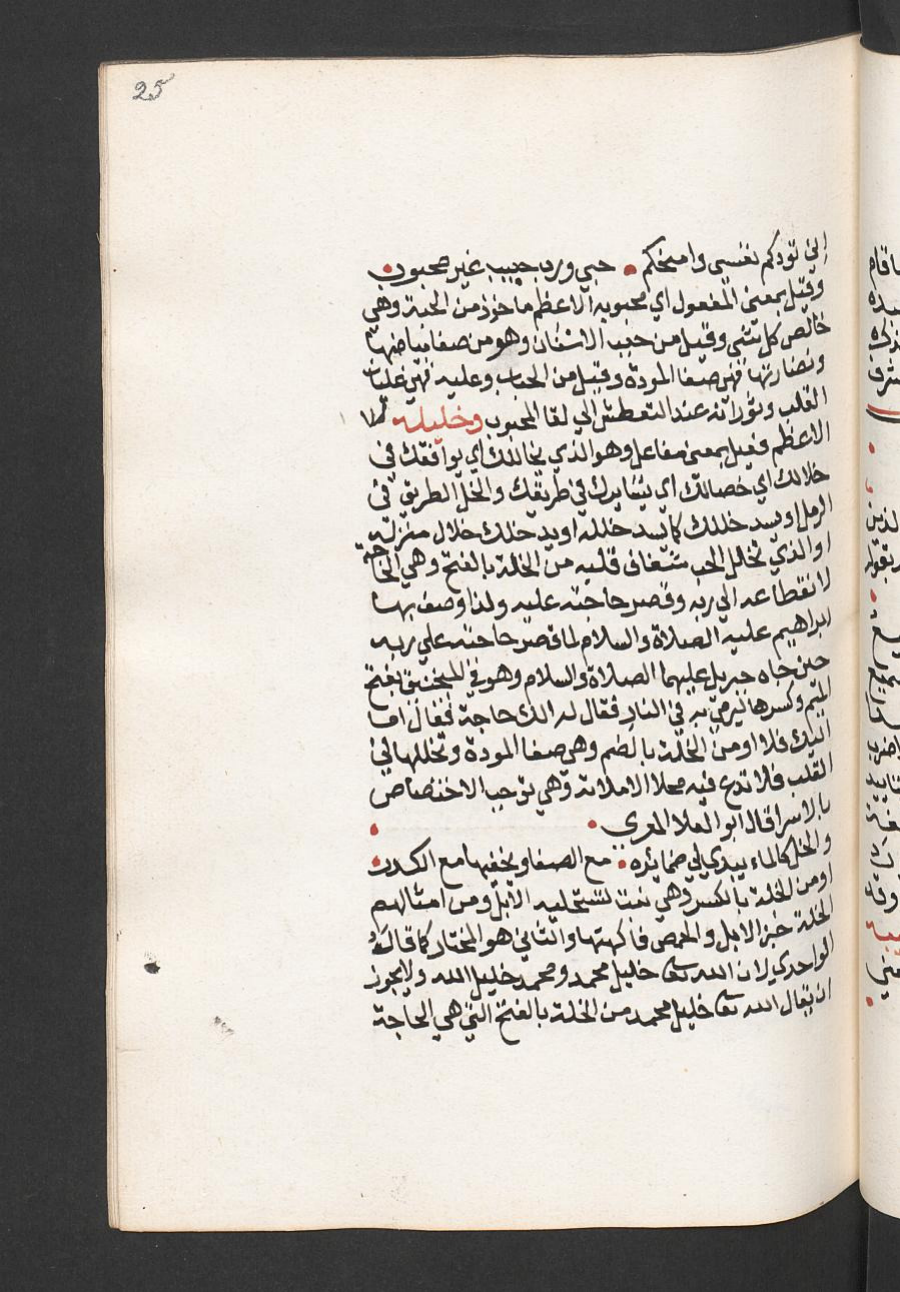 25
اني تودكم نفسي وامنحكم • حبي ورب حبيب غير محبوب •
وقيل بمعنى المفعول اي محبوبه الاعظم ماخوذ من الحبة وهي
خالص كل شي وقيل من حبب الاسنان وهو من صفا بياضها
ونضارتها فهي صفا المودة وقيل من الحباب وعليه فهي غليان
القلب وثورانه عند التعطش الي لقا المحبوب وخليله
الاعظم فعيل بمعنى مفاعل وهو الذي يخاللك اي يوافقك في
خلالك اي خصالك اي يسايرك في طريقك والخل الطريق في
الرمل او يسد خللك كما يسد خلله او يدخلك خلال منزله
او الذي تخلل الحب شغاف قلبه من الخلة بالفتح وهي الحاجة
لانقطاعه الي ربه وقصر حاجته عليه ولذا وصف بها
ابراهيم عليه الصلاة والسلام لما قصر حاجته علي ربه
حين جاه جبريل عليهما الصلاة والسلام وهو في المنجنيق بفتح
الميم وكسرها ليرمي به في النار فقال له الك حاجة فقال اما
اليك فلا او من الخلة بالضم وهي صفا المودة وتخللها في
القلب فلا تدع فيه محلا الا ملاته وهي توجب الاختصاص
بالاسرار قال ابو العلا المعري • •
والخل كالماء يبدي لي ضمائره • مع الصفا ويخفيها مع الكدر •
او من الخلة بالكسر وهي نبت تستحليه الابل ومن امثالهم
الخلة خبز الابل والحمض فاكهتها والثاني هو المختار كما قاله
الواحدي لان الله تعالى خليل محمد ومحمد خليل الله ولا يجوز
ان يقال الله تعالى خليل محمد من الخلة بالفتح التي هي الحاجة